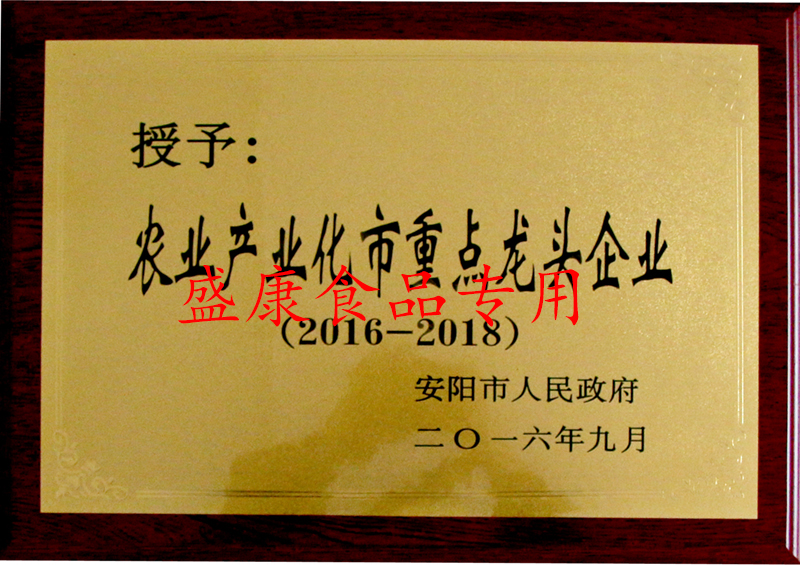 授予：
农业产业化市重点龙头企业
盛康食品专用
（2016－2018）
安阳市人民政府
二〇一六年九月